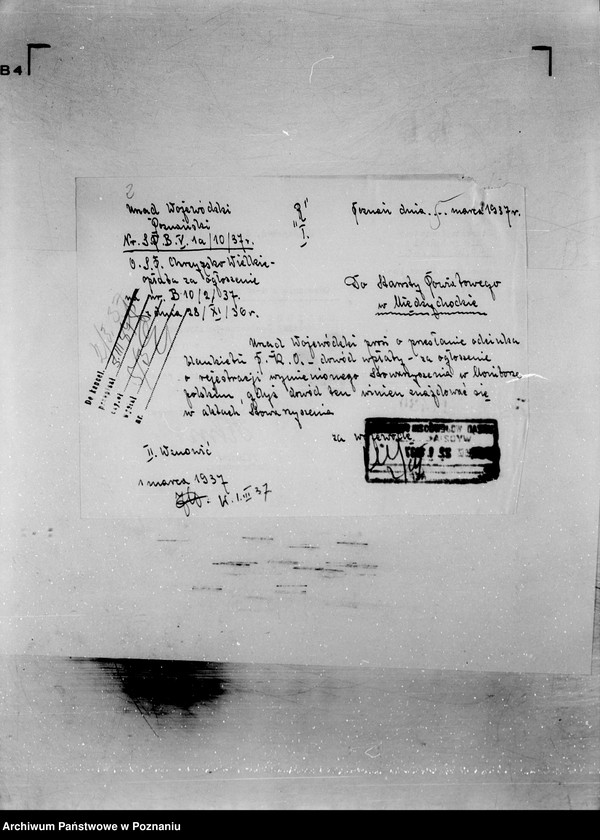 B4
2
Urząd Wojewódzki
Poznański
Nr. S.P.B.V. 1a/10/37r.
O.S.P. Chrzypsko Wielkie -
opłata za ogłoszenie
nr. B 10/2/37.
z dnia 28/XI/36r.
"I."
Poznań dnia 5. marca 1937r.
Do Starosty Powiatowego
w Międzychodzie
Urząd Wojewódzki prosi o przesłanie odcinka
blankietu P.K.O. - dowód wpłaty - za ogłoszenie
o rejestracji wymienionego Stowarzyszenia w Monitorze
polskim, gdyż dowód ten winien znajdować się
w aktach Stowarzyszenia
za wojewodę
Do kancel.
przepisał
czytał
wysłał
II. Wznowić
1 marca 1937
K. 1.III 37
Archiwum Państwowe w Poznaniu